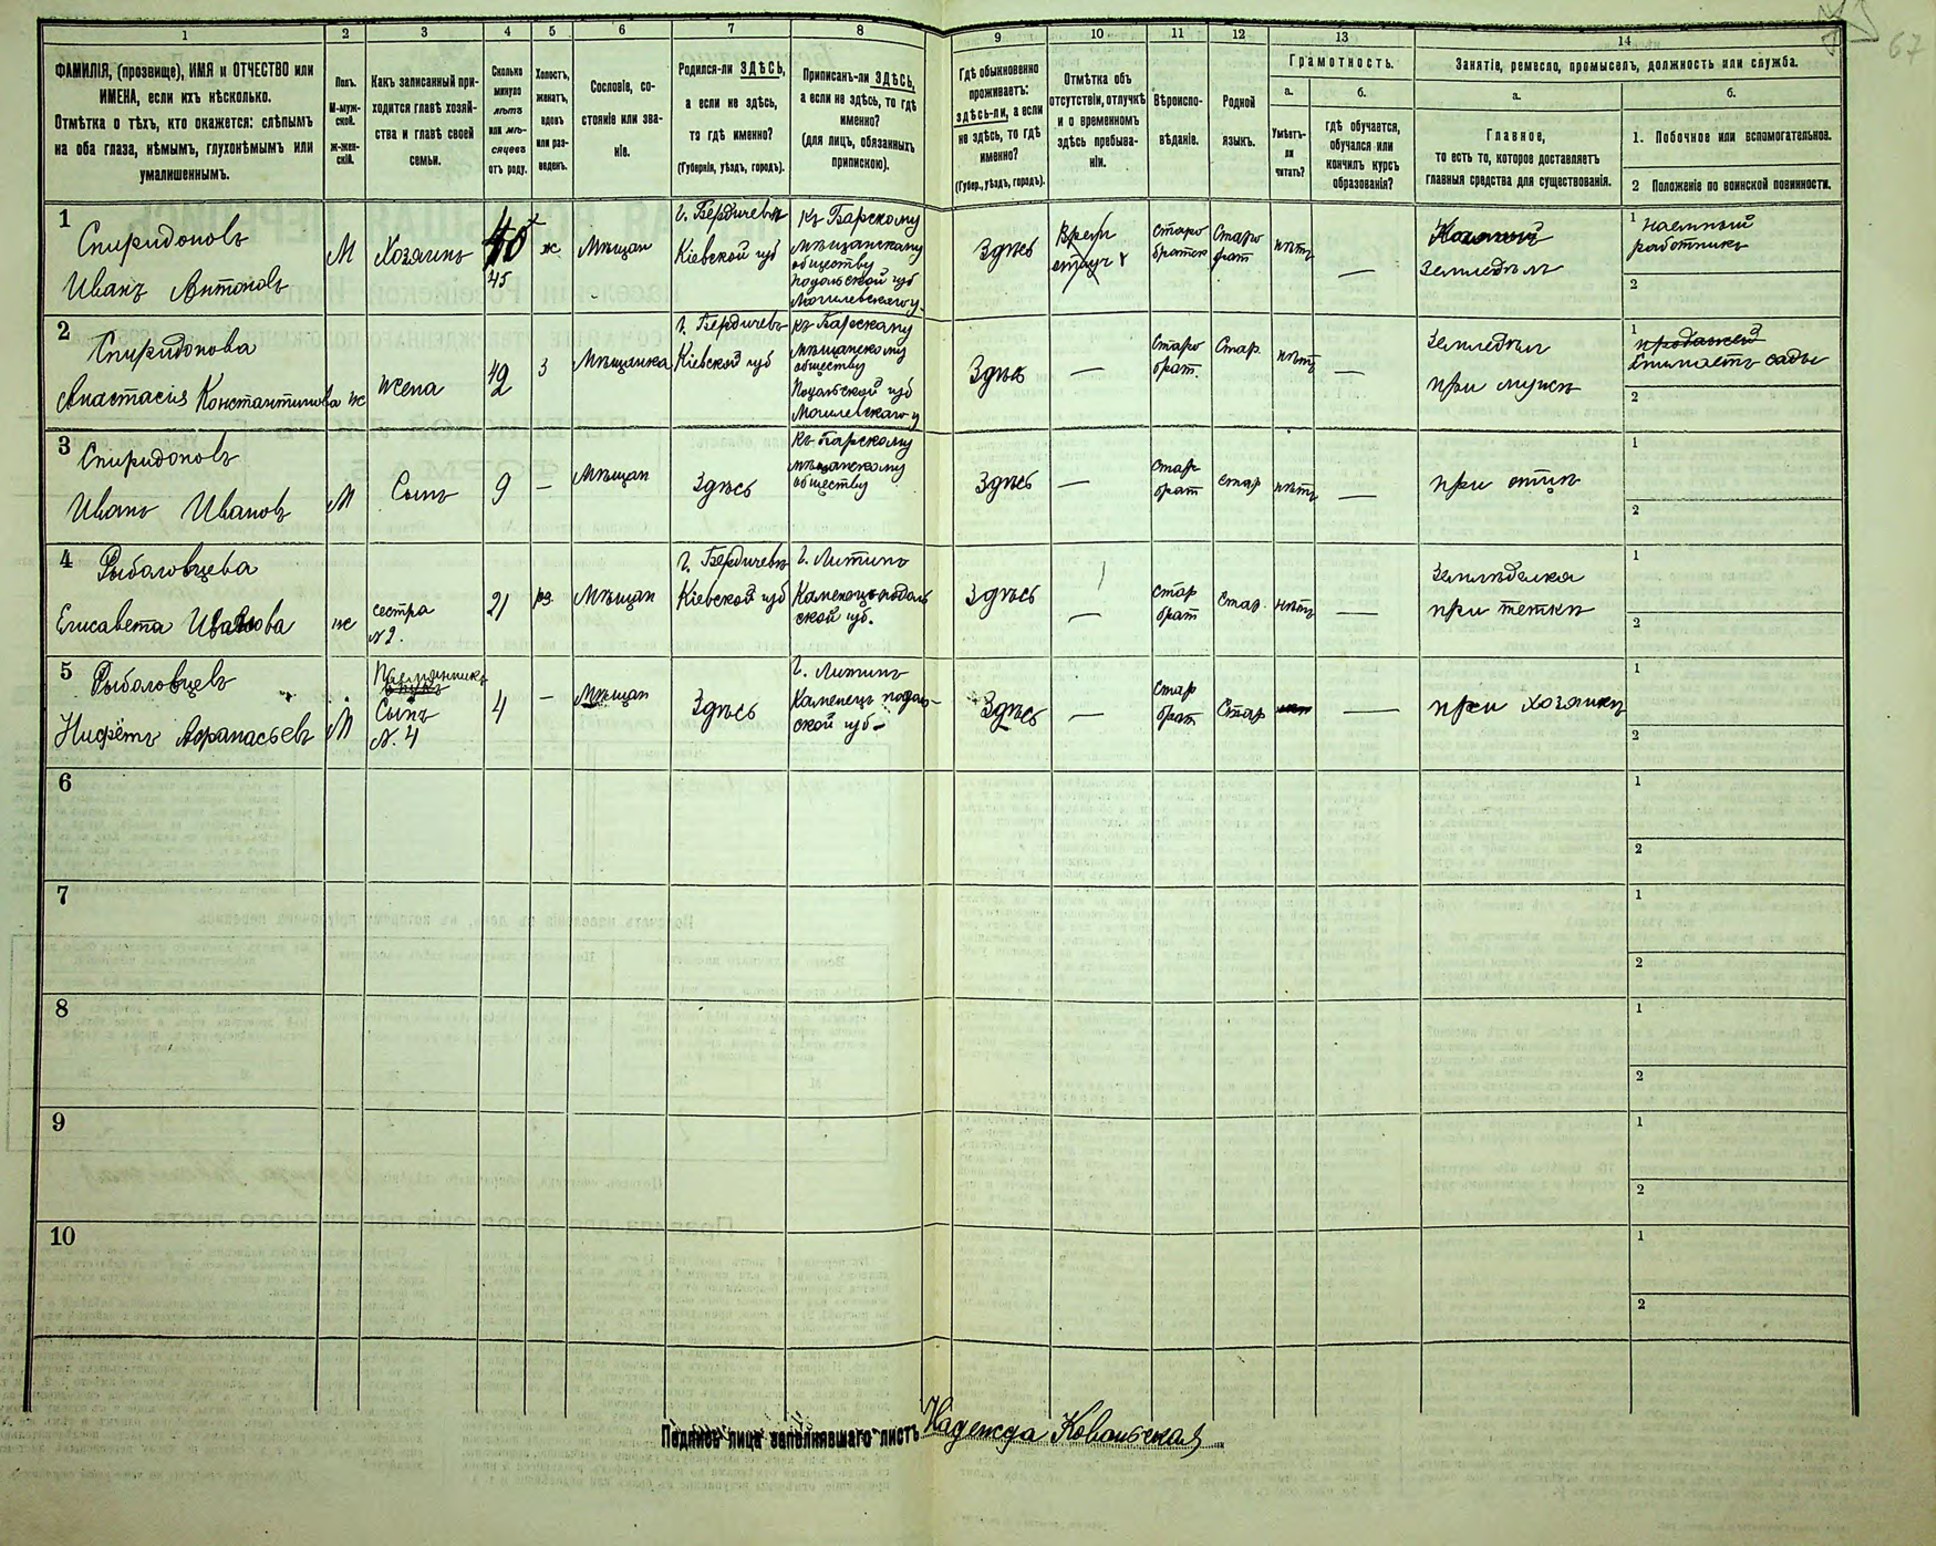 67
1 2 3 4 5 6 7 8 9 10 11 12 13 14
ФАМИЛІЯ, (прозвище), ИМЯ и ОТЧЕСТВО или
ИМЕНА, если ихъ нѣсколько.
Отмѣтка о тѣхъ, кто окажется: слѣпымъ
на оба глаза, нѣмымъ, глухонѣмымъ или
умалишеннымъ.
Полъ.
М-муж-
ской.
ж-жен-
скій.
Какъ записанный при-
ходится главѣ хозяй-
ства и главѣ своей
семьи.
Сколько
минуло
лѣтъ
или мѣ-
сяцевъ
отъ роду.
Холостъ,
женатъ,
вдовъ
или раз-
веденъ.
Сословіе, со-
стояніе или зва-
ніе.
Родился-ли ЗДѢСЬ,
а если не здѣсь,
то гдѣ именно?
(Губернія, уѣздъ, городъ).
Приписанъ-ли ЗДѢСЬ,
а если не здѣсь, то гдѣ
именно?
(для лицъ, обязанныхъ
припискою).
Гдѣ обыкновенно
проживаетъ:
здѣсь-ли, а если
не здѣсь, то гдѣ
именно?
(Губер., уѣздъ, городъ).
Отмѣтка объ
отсутствіи, отлучкѣ
и о временномъ
здѣсь пребыва-
ніи.
Вѣроиспо-
вѣданіе.
Родной
языкъ.
Грамотность.
а.
Умѣетъ-
ли
читать?
б.
гдѣ обучается,
обучался или
кончилъ курсъ
образованія?
Занятіе, ремесло, промыселъ, должность или служба.
а.
Главное,
то есть то, которое доставляетъ
главныя средства для существованія.
б.
1. Побочное или вспомогательное.
2 Положеніе по воинской повинности.
1
Спиридоновъ
Иванъ Антоновъ
М
Хозяинъ
40
45
ж
Мѣщан
г. Бердичевъ
Кіевской губ
къ Барскому
мѣщанскому
обществу
Подольской губ
Могилевскаго у.
Здѣсь
Врем
отлуч
старо
братск
Старо
брат
нѣтъ
—
земледѣл
1 наемный
работникъ
2
2
Спиридонова
Анастасія Константинова
ж
жена
42
з
Мѣщанка
г. Бердичевъ
Кіевской губ
къ Барскому
мѣщанскому
обществу
Подольской губ
Могилевскаго у
Здѣсь
—
Старо
брат.
Стар.
нѣтъ
—
земледѣл
при мужѣ
1
сады
2
3
Спиридоновъ
Иванъ Ивановъ
М
Сынъ
9
—
Мѣщан
Здѣсь
къ Барскому
мѣщанскому
обществу
Здѣсь
—
Стар
брат
стар
нѣтъ
—
при отцѣ
1
2
4
Рыболовцева
Елисавета Иванова
ж
сестра
№2.
21
Мѣщан
г. Бердичевъ
Кіевской губ
г. Литинъ
Каменецъ-подоль
ской губ.
Здѣсь
—
стар
брат
Стар.
нѣтъ
—
Земледѣлка
при теткѣ
1
2
5
Рыболовцевъ
Нифётъ Афанасьевъ
М
Племянникъ
внукъ
Сынъ
№. 4
4
—
Мѣщан
Здѣсь
г. Литинъ
Каменецъ подол-
ской губ-
Здѣсь
—
Стар
брат
Стар
—
при хозяинѣ
1
2
6
1
2
7
1
2
8
1
2
9
1
2
10
1
2
Подпись лица заполнявшаго листъ Надежда Ковальская